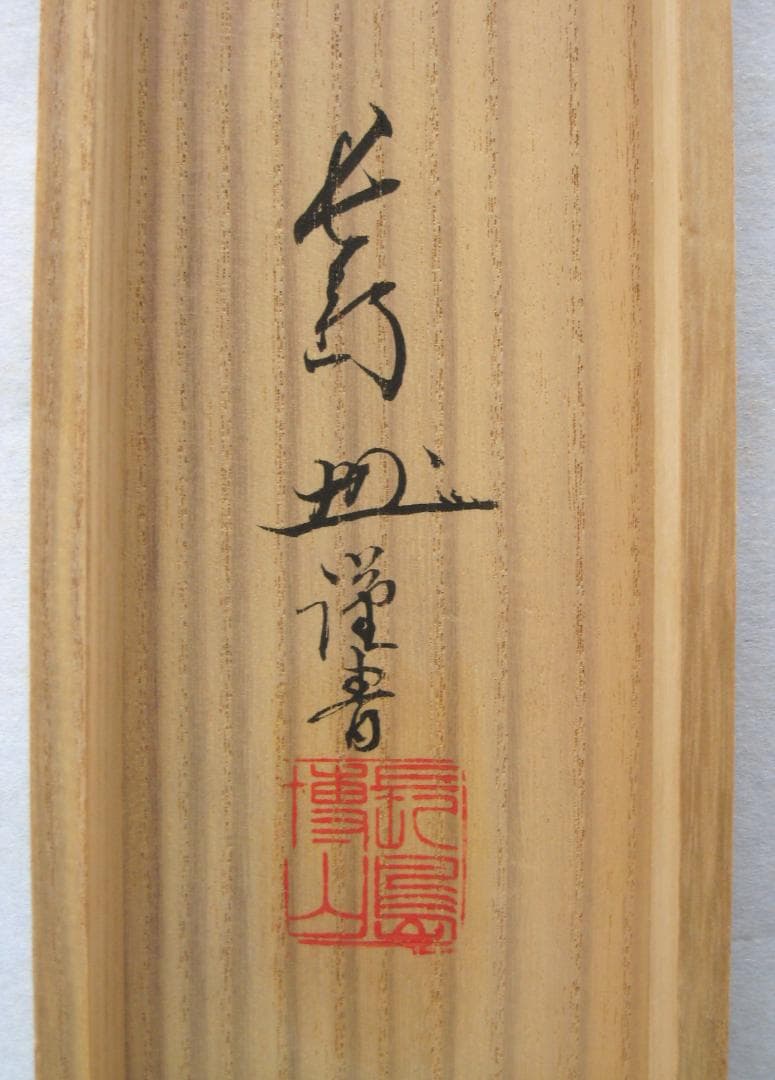 長島
謹書
長島
博山